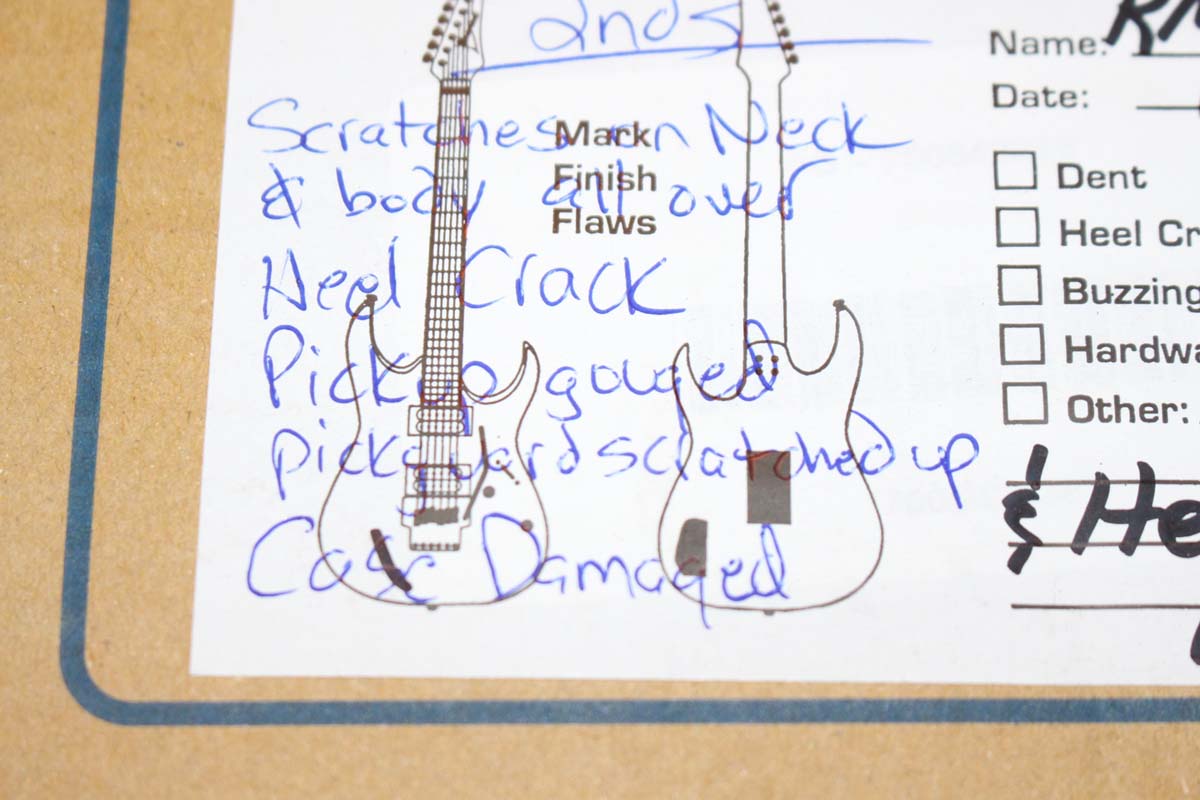 2nds
Scratches on Neck
& body all over
Heel Crack
Pickup gouged
pickguard scratched up
Case Damaged
Mark
Finish
Flaws
Name:
Date:
Dent
Heel Cr
Buzzing
Hardwa
Other:
& He